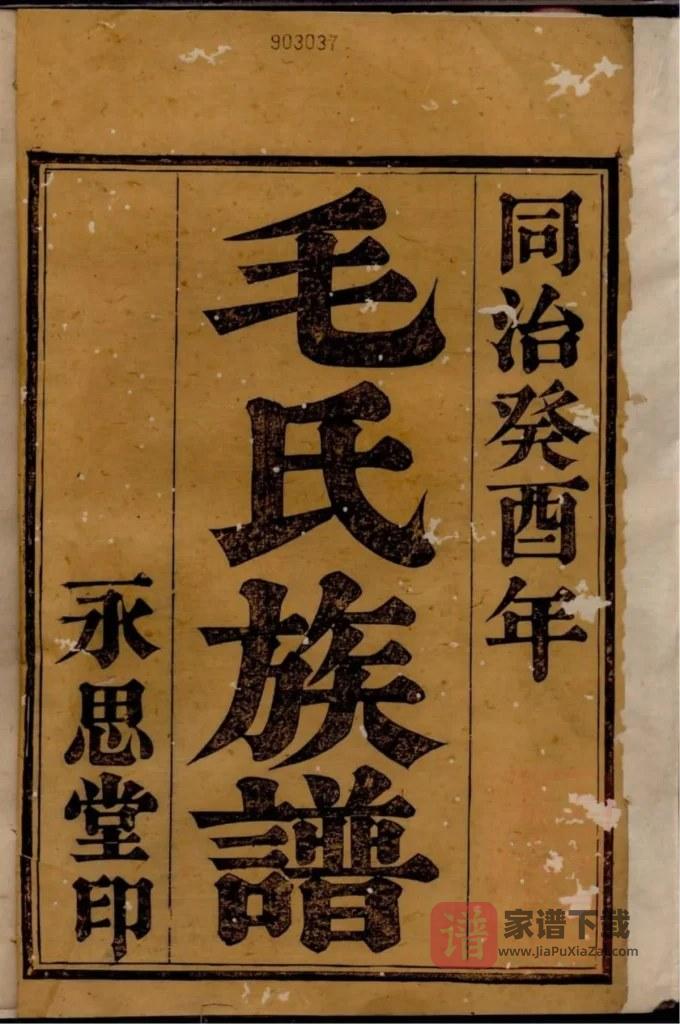 903037
同治癸酉年
毛氏族譜
永思堂印
谱
家谱下载
www.JiaPuXiaZai.com